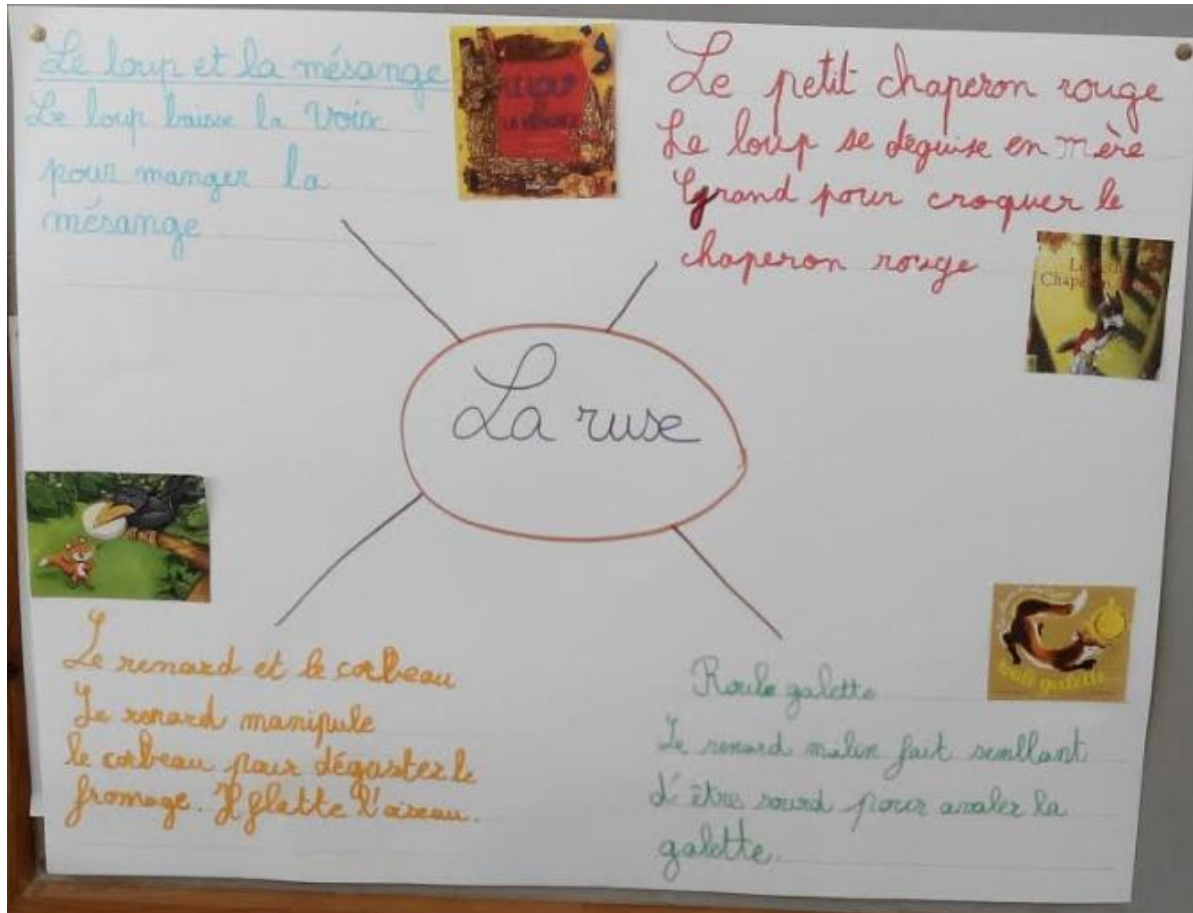 Le loup et la mésange
Le loup baisse la voix
pour manger la
mésange
LE LOUP
LA MESANGE
Le petit chaperon rouge
Le loup se déguise en mère
grand pour croquer le
chaperon rouge
Chaperon
La ruse
Le renard et le corbeau
Le renard manipule
le corbeau pour dégaster le
fromage. Il flatte l'oiseau.
roule galette
Roule galette
Le renard malin fait semllant
d'être sourd pour avaler la
galette.